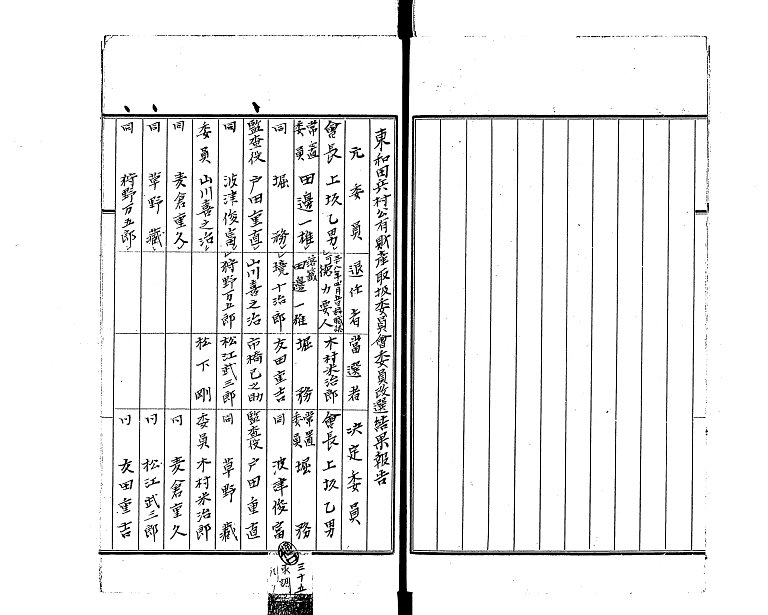 東和田共村公有財産取扱委員會委員改選結果報告
元委員　退任者　當選者　決定委員
會長　上坂乙男　徳力要人　木村米治郎　會長　上坂乙男
常置委員　田邊一雄　田邊一雄　堀務　常置委員　堀務
同　堀務　境十治郎　友田重吉　同　波津俊富
監査役　戸田重直　山川喜之治　市橋己之助　監査役　戸田重直
同　波津俊富　狩野万五郎　松江武三郎　同　草野藏
委員　山川喜之治　松下剛　委員　木村米治郎
同　麦倉重久　〃　麦倉重久
同　草野藏　〃　松江武三郎
同　狩野万五郎　〃　友田重吉
三十五